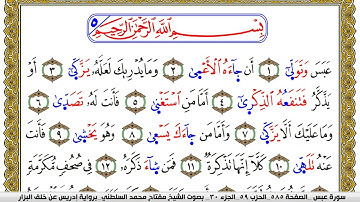 بِسْمِ اللَّهِ الرَّحْمَٰنِ الرَّحِيمِ ٥
عَبَسَ وَتَوَلَّىٰ ١ أَن جَآءَهُ الْأَعْمَىٰ ٢ وَمَا يُدْرِيكَ لَعَلَّهُۥ يَزَّكَّىٰ ٣ أَوْ
يَذَّكَّرُ فَتَنفَعُهُ الذِّكْرَىٰ ٤ أَمَّا مَنِ اسْتَغْنَىٰ ٥ فَأَنتَ لَهُۥ تَصَدَّىٰ ٦
وَمَا عَلَيْكَ أَلَّا يَزَّكَّىٰ ٧ وَأَمَّا مَن جَآءَكَ يَسْعَىٰ ٨ وَهُوَ يَخْشَىٰ ٩ فَأَنتَ
عَنْهُ تَلَهَّىٰ ١٠ كَلَّآ إِنَّهَا تَذْكِرَةٌ ١١ فَمَن شَآءَ ذَكَرَهُۥ ١٢ فِى صُحُفٍ مُّكَرَّمَةٍ
سورة عبس الصفحة ٥٨٥ الحزب ٥٩ الجزء ٣٠ بصوت الشيخ مفتاح محمد السلطني برواية إدريس عن خلف البزار